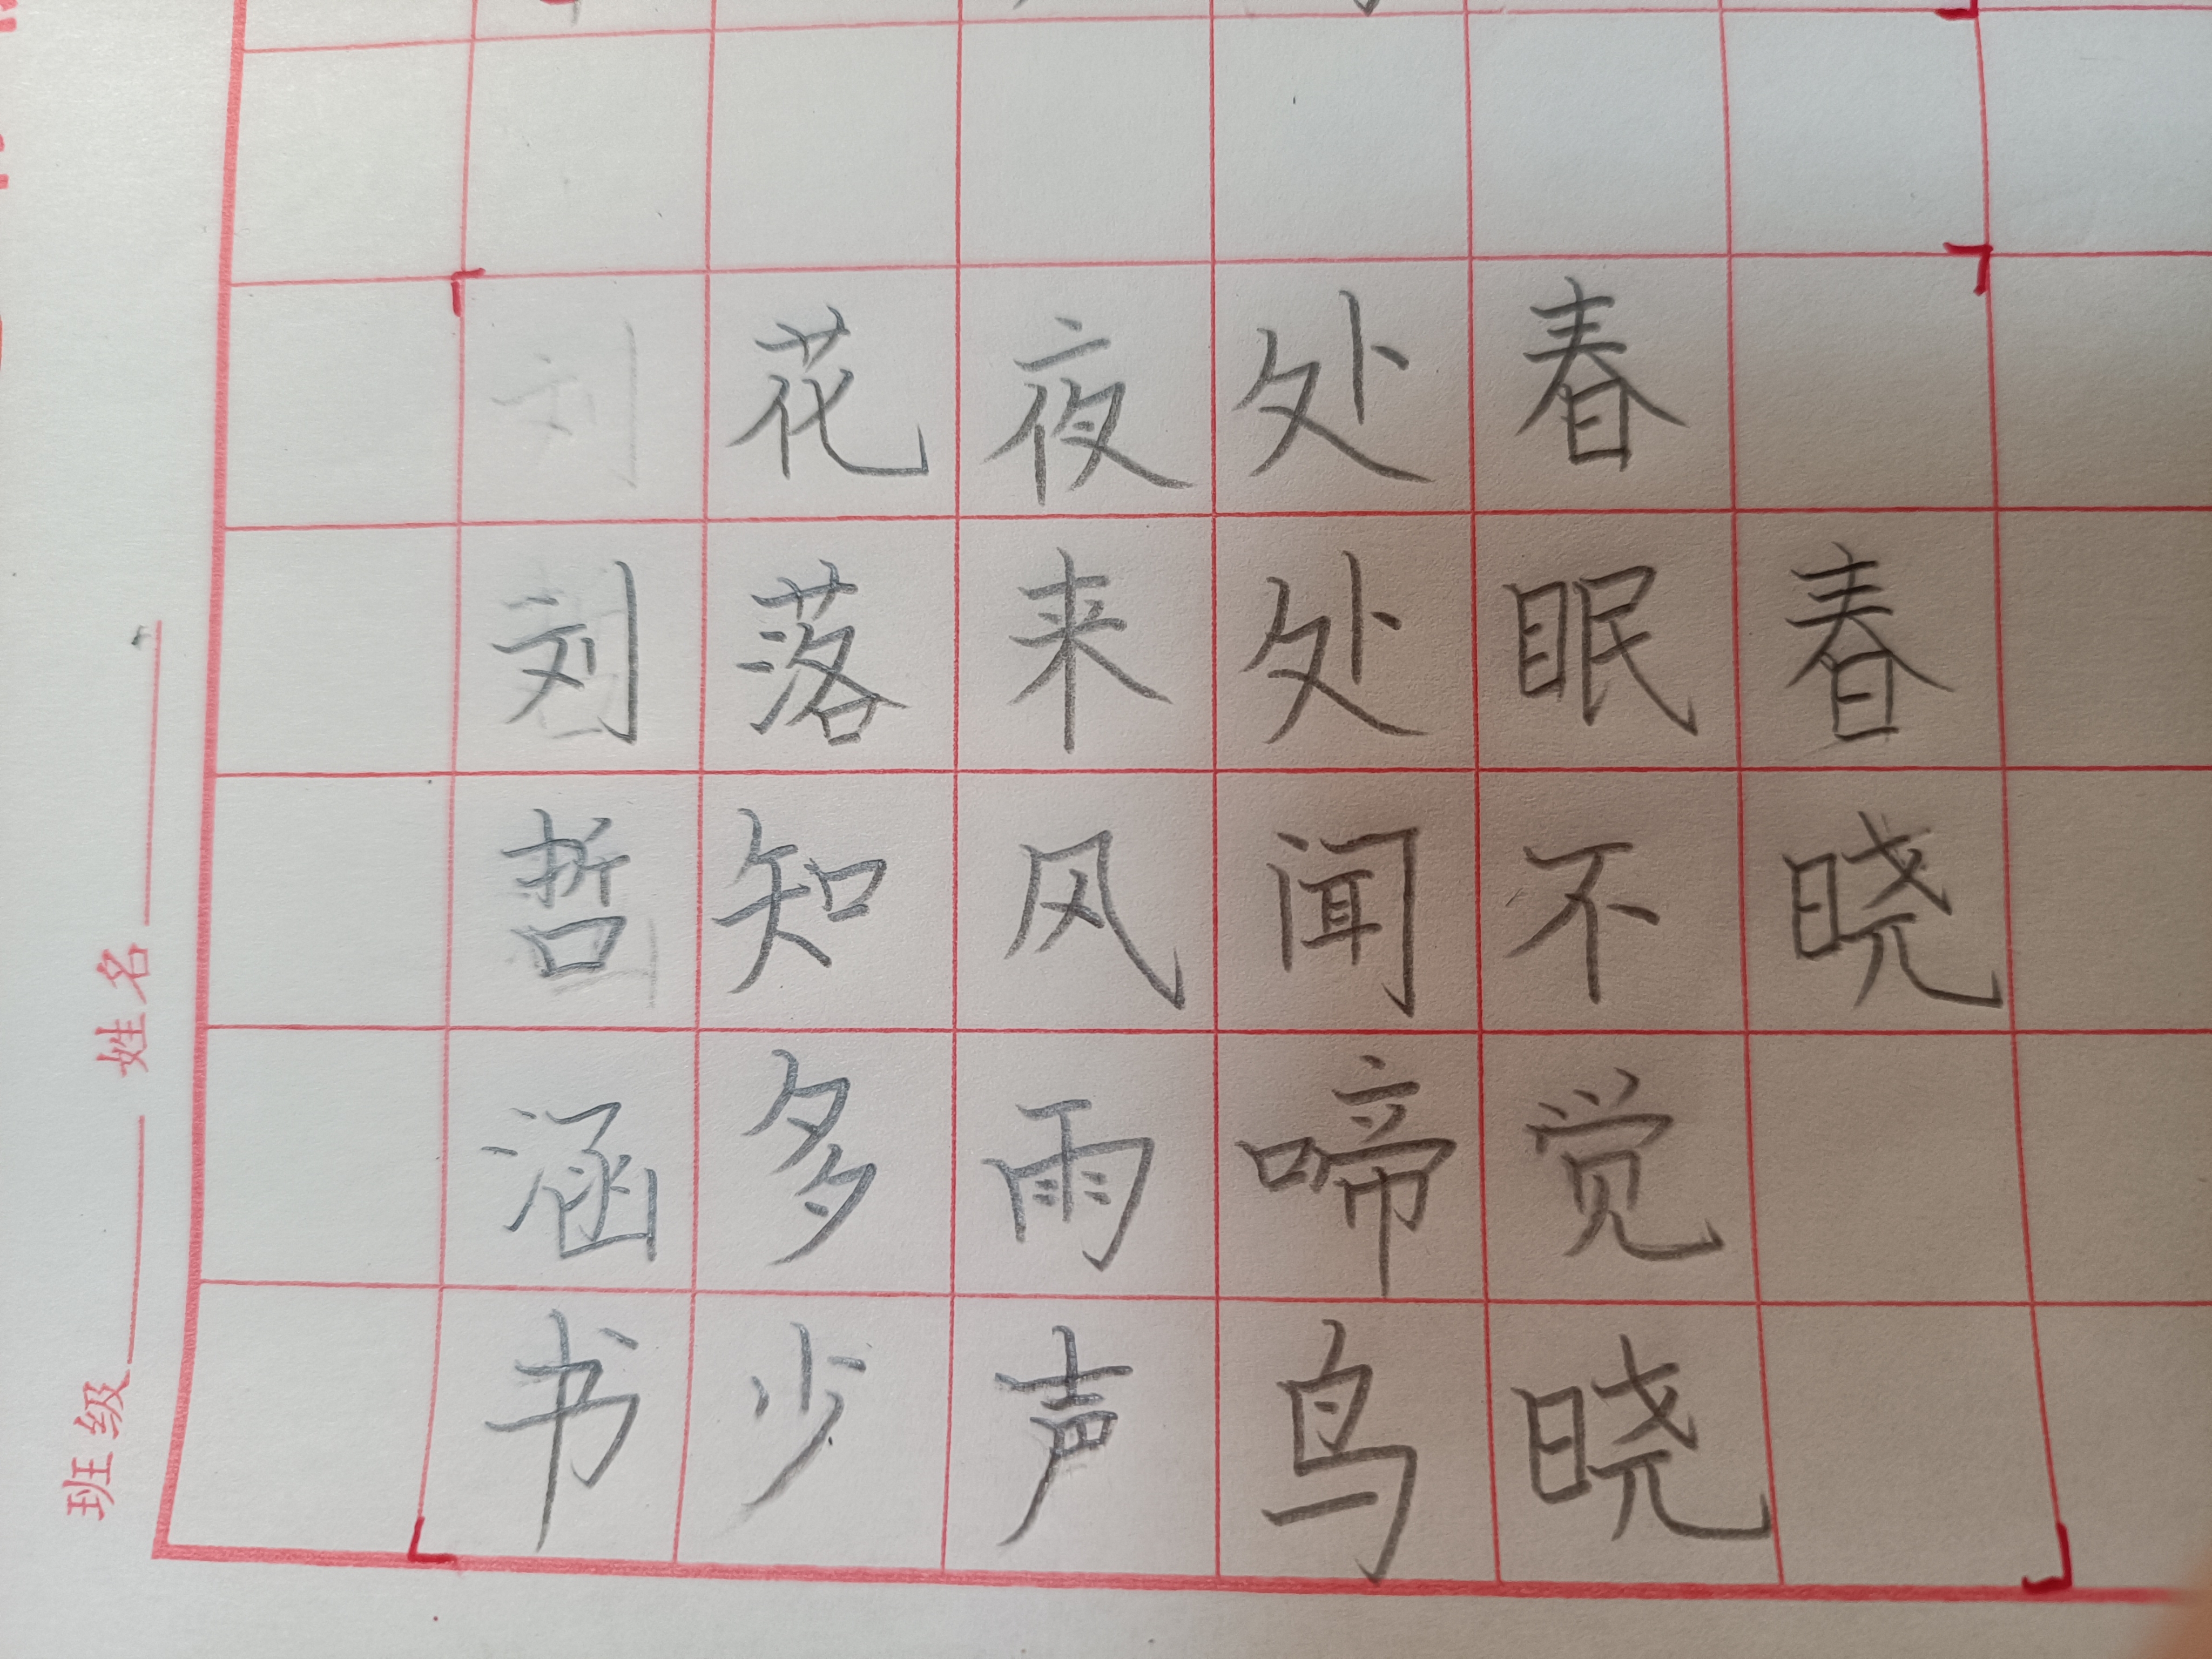 春晓
春眠不觉晓
处处闻啼鸟
夜来风雨声
花落知多少
刘哲涵书
班级 姓名